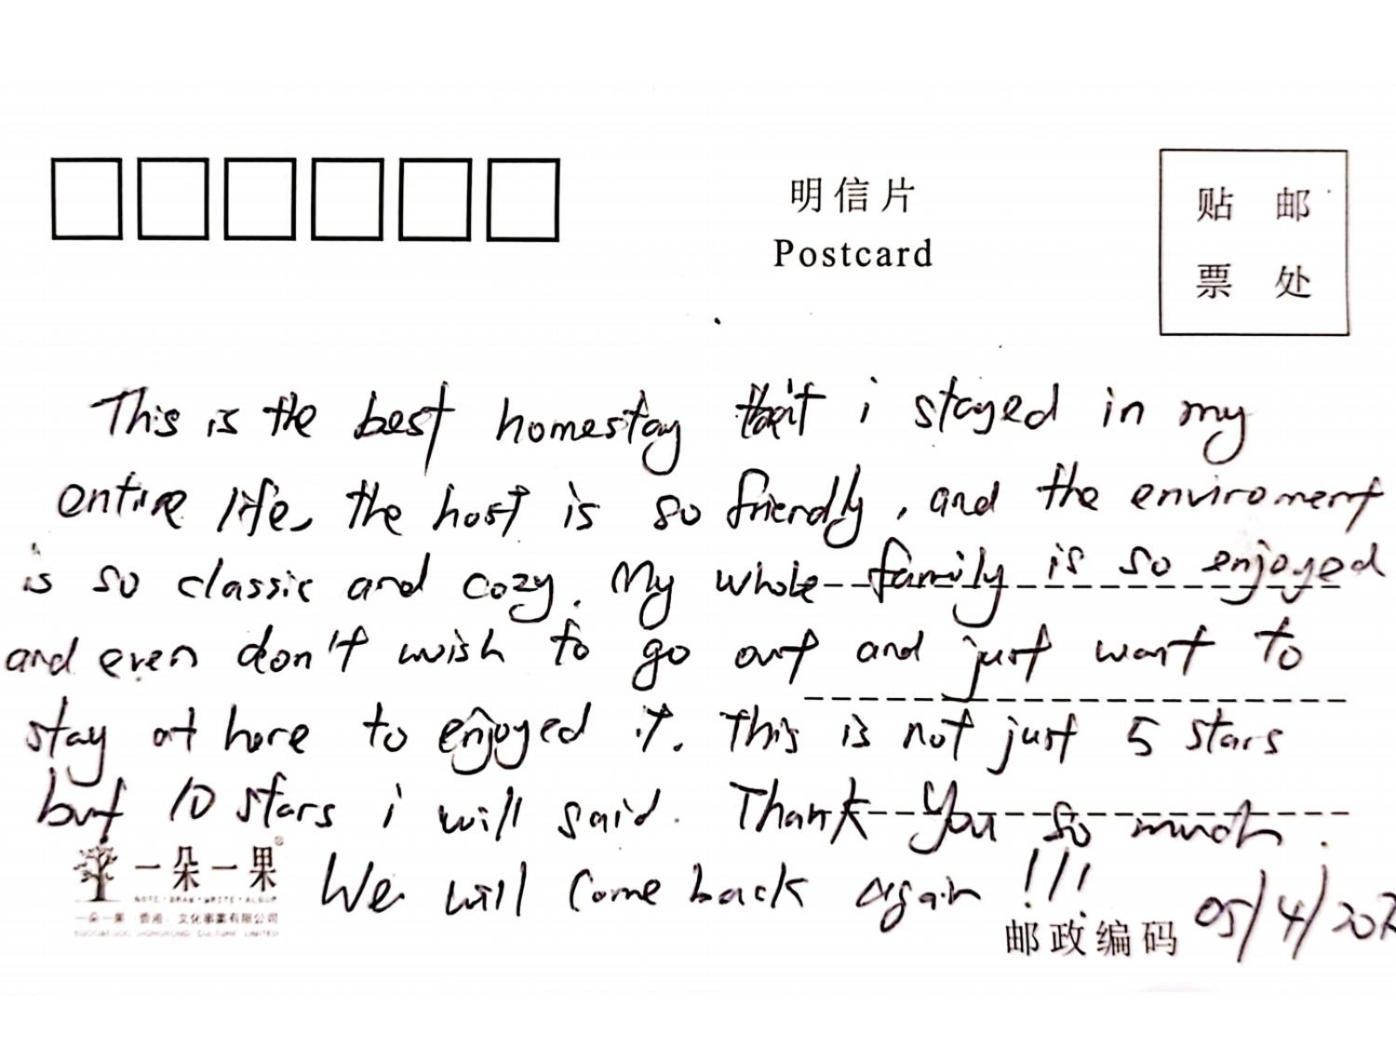 明信片
Postcard
贴 邮
票 处
This is the best homestay that i stayed in my
entire life, the host is so friendly, and the enviroment
is so classic and cozy. My whole family is so enjoyed
and even don't wish to go out and just want to
stay at here to enjoyed it. This is not just 5 stars
but 10 stars i will said. Thank You so much.
We will come back again !!!
一朵一果
NOTE·DRAW·WRITE·ALBUM
一朵一果（香港）文化事業有限公司
邮政编码
05/4/202